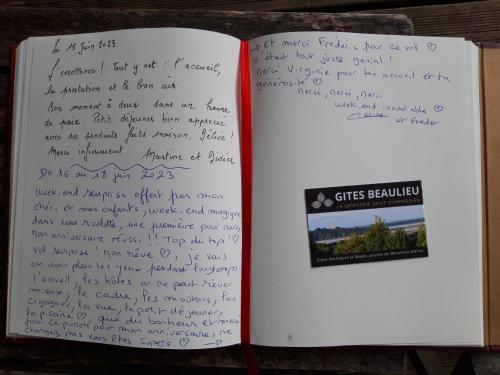 Le 15 Juin 2023
L'excellence ! Tout y est : l'accueil,
la prestation et le bon air.
Bon moment à deux dans un havre
de paix. Petit déjeuner bien apprécié
avec des produits faits maison. Délice !
Merci infiniment. Martine et Didier
Du 16 au 18 juin 2023
week-end surprise offert par mon
chéri et mes enfants, week-end magique
dans une roulotte, une première pour moi,
mon anniversaire réussi !! Top du top ♡
vol surprise ! mon rêve ♡, je vais
en avoir plein les yeux pendant longtemps.
L'accueil, les hôtes on ne peut rêver
mieux, le cadre, les moutons, les
cigognes, la vue, le petit déjeuner,
la piscine ♡, que du bonheur et merci
pour ce punch pour mon anniversaire, ne
changez pas vous êtes supers ♡ →
→ Et merci Frédéric pour ce vol ♡
c'était tout juste génial !
Merci Virginie pour ton accueil et ta
générosité ♡
Merci, merci, merci.
week-end inoubliable ♡
et Fredo
GITES BEAULIEU
LA GRIPPERIE SAINT SYMPHORIEN
Entre Rochefort et Royan, proche de Marennes Oléron